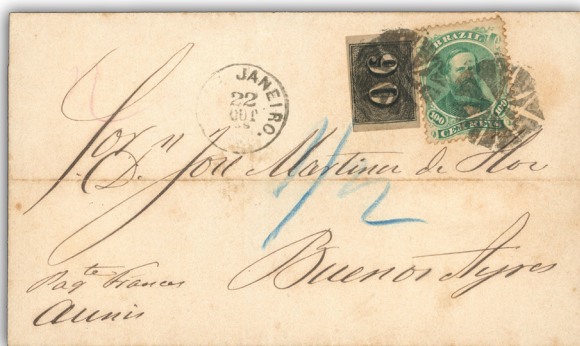 JANEIRO.
22
OUT
90
BRAZIL
100 100
CEM REIS
Sor. n n
D. José Martinez de Hoz
1/2
Buenos Ayres
Paqte Frances
Aunis